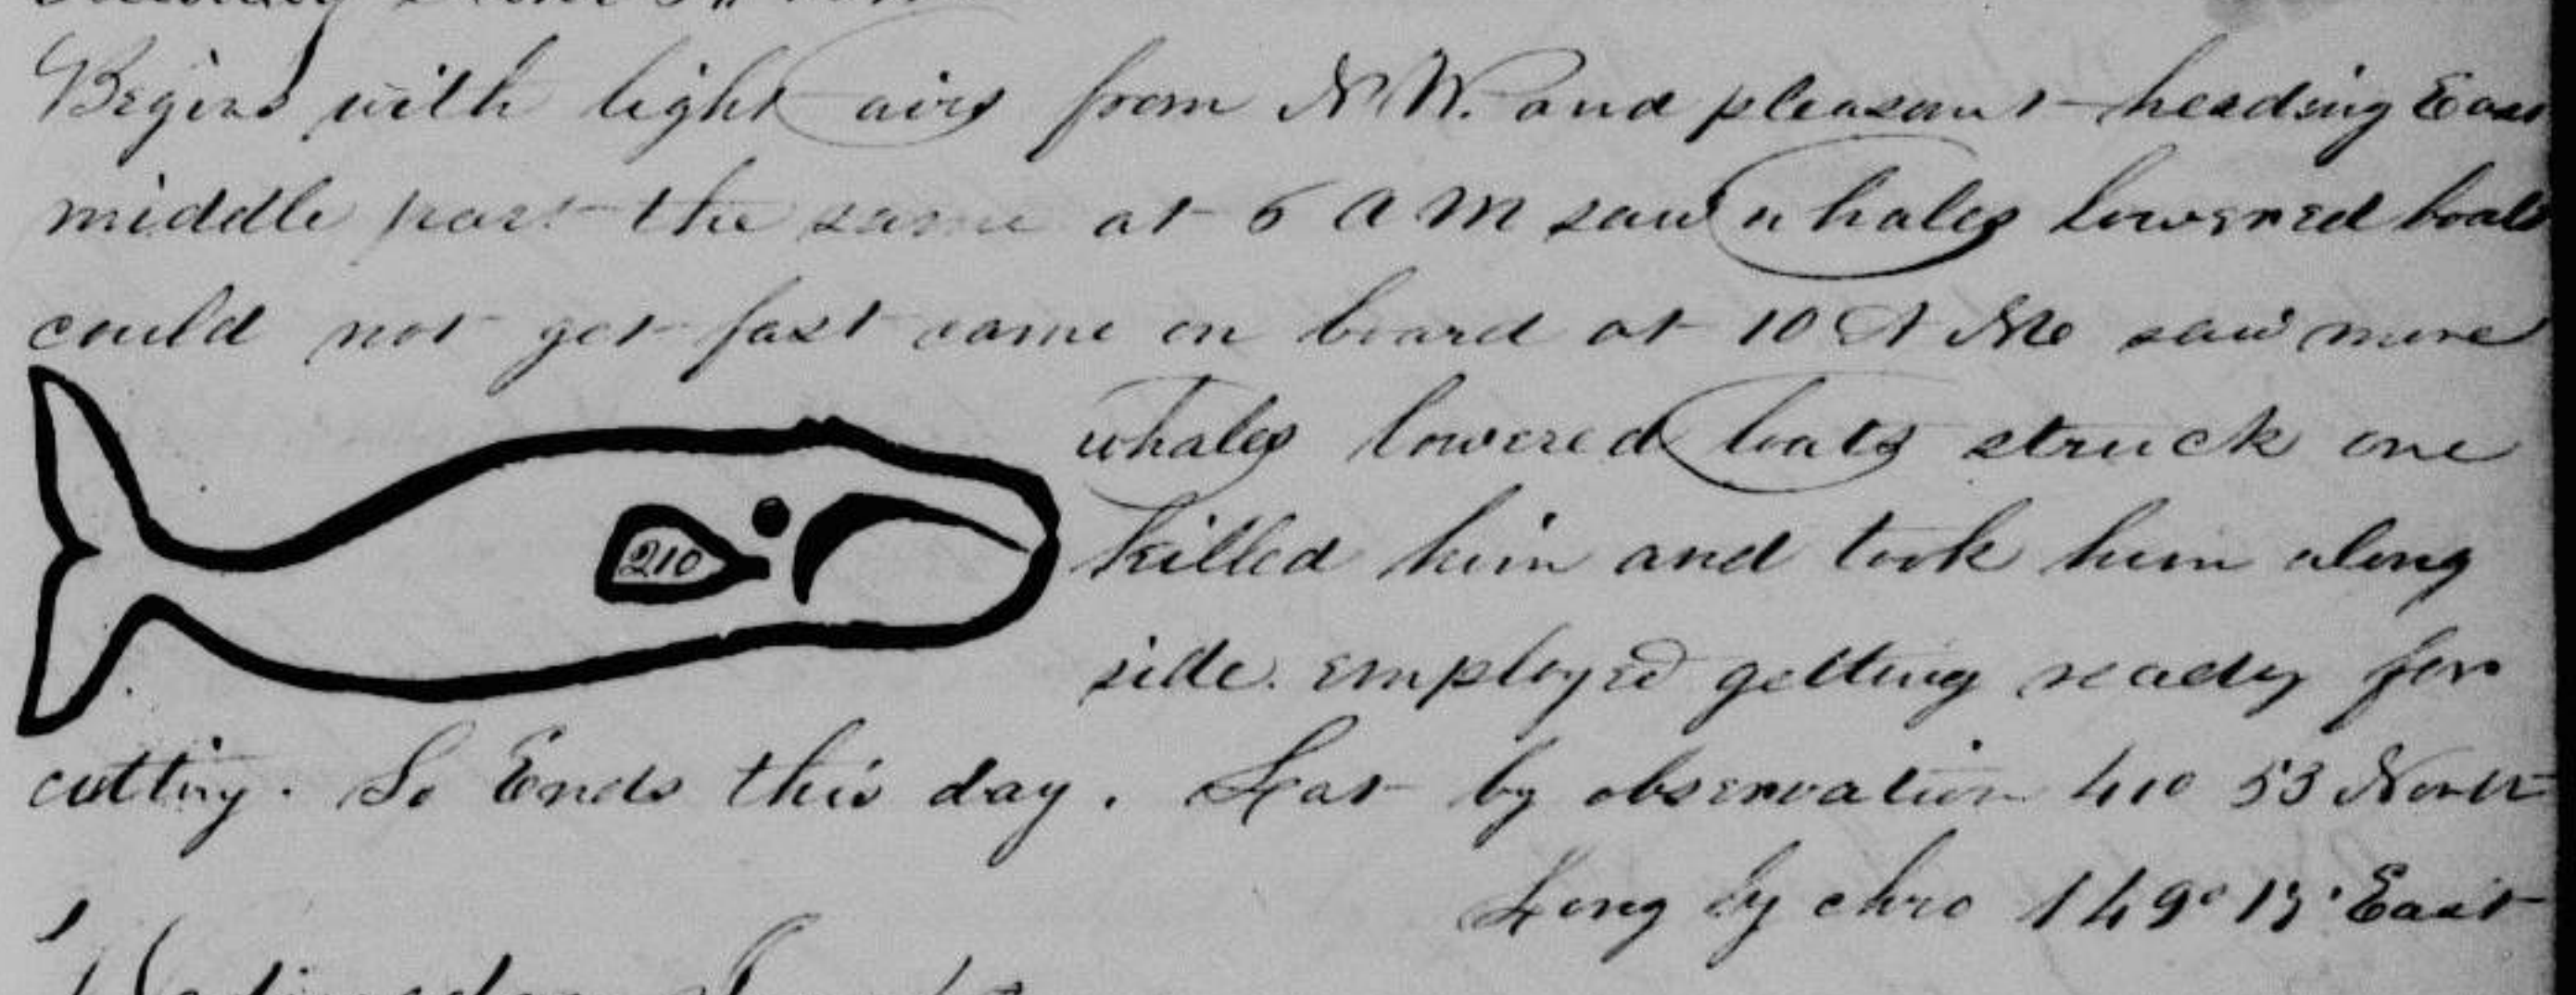 Begins with light airs from N.W. and pleasant heading East
middle part the same at 6 A M saw whales lowered boats
could not get fast came on board at 10 A M saw more
whales lowered boats struck one
killed him and took him along
210
side. employed getting ready for
cutting. So Ends this day. Lat by observation 41° 53 North
Long by chro 149° East